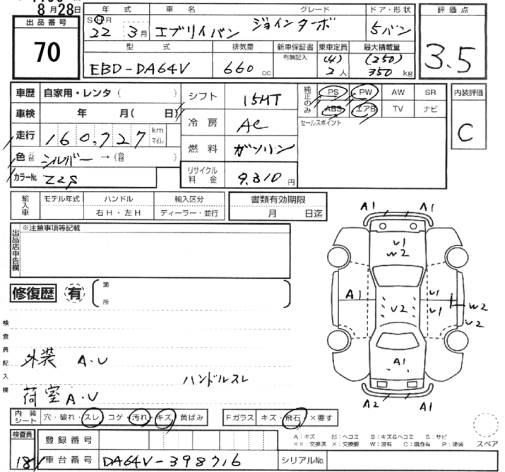 8月28日
出品番号
70
年式 車名 グレード ドア・形状
S H R
22 3月 エブリイバン ジョインターボ 5バン
型式 排気量 新車保証書 乗車定員 最大積載量
有無記入 (4) (250)
EBD-DA64V 660cc 2人 350kg
評価点
3.5
車歴 自家用・レンタ( )
車検 年 月( )日
走行 160,727 km マイル
色 シルバー → (色替)
カラーNo. Z2S
シフト 15MT
冷房 AC
燃料 ガソリン
リサイクル料金 9,310円
純正のみ PS PW AW SR
ABS エアB TV ナビ
セールスポイント
内装評価
C
輸入車 モデル年式 ハンドル 輸入区分
右H・左H ディーラー・並行
書類有効期限
月 日迄
出品店申告欄
※注意事項等記載
修復歴 有 箇所
検査員記入欄
外装 A.U
荷室 A.U
ハンドルスレ
A1 A1
U1
W2
A1 U2 U1 W2
U2
A1
A2 A1
内装シート 穴・破れ・スレ コゲ・汚れ・キズ 黄ばみ
Fガラス キズ・飛石 ×要す
検査員
登録番号
車台番号 DA64V-398716
シリアルNo.
A:キズ U:ヘコミ B:キズ&ヘコミ S:サビ
スペア